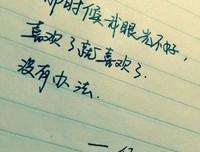 那时候我眼光不好,
喜欢了就喜欢了.
没有办法.